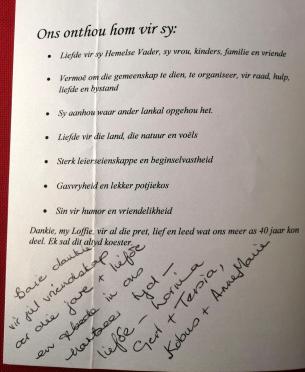 Ons onthou hom vir sy:
Liefde vir sy Hemelse Vader, sy vrou, kinders, familie en vriende
Vermoë om die gemeenskap te dien, te organiseer, vir raad, hulp,
liefde en bystand
Sy aanhou waar ander lankal opgehou het.
Liefde vir die land, die natuur en voëls
Sterk leierseienskappe en beginselvastheid
Gasvryheid en lekker potjiekos
Sin vir humor en vriendelikheid
Dankie, my Loffie, vir al die pret, lief en leed wat ons meer as 40 jaar kon
deel. Ek sal dit altyd koester.
Baie dankie
vir jul vriendskap
oor die jare + liefde
en gebede in ons
hartseer tyd –
liefde – Lornina
Gert + Tersia,
Kobus + AnneMarie